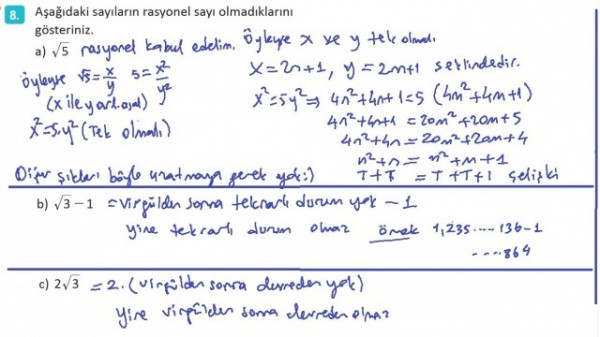 8. Aşağıdaki sayıların rasyonel sayı olmadıklarını
gösteriniz.
a) √5 rasyonel kabul edelim. Öyleyse x ve y tek olmalı
Öyleyse √5 = x/y 5 = x²/y² x = 2n+1, y = 2m+1 şeklindedir.
(x ile y ar. asal) x² = 5y² ⇒ 4n²+4n+1 = 5(4m²+4m+1)
x² = 5.y² (Tek olmalı) 4n²+4n+1 = 20m²+20m+5
4n²+4n = 20m²+20m+4
n²+n = m²+m+1
Diğer şıkları böyle uzatmaya gerek yok:) T+T = T+T+1 çelişki
b) √3 − 1 = virgülden sonra tekrarlı durum yok − 1
yine tekrarlı durum olmaz örnek 1,235.....136−1
....864
c) 2√3 = 2.(virgülden sonra devreden yok)
yine virgülden sonra devreden olmaz